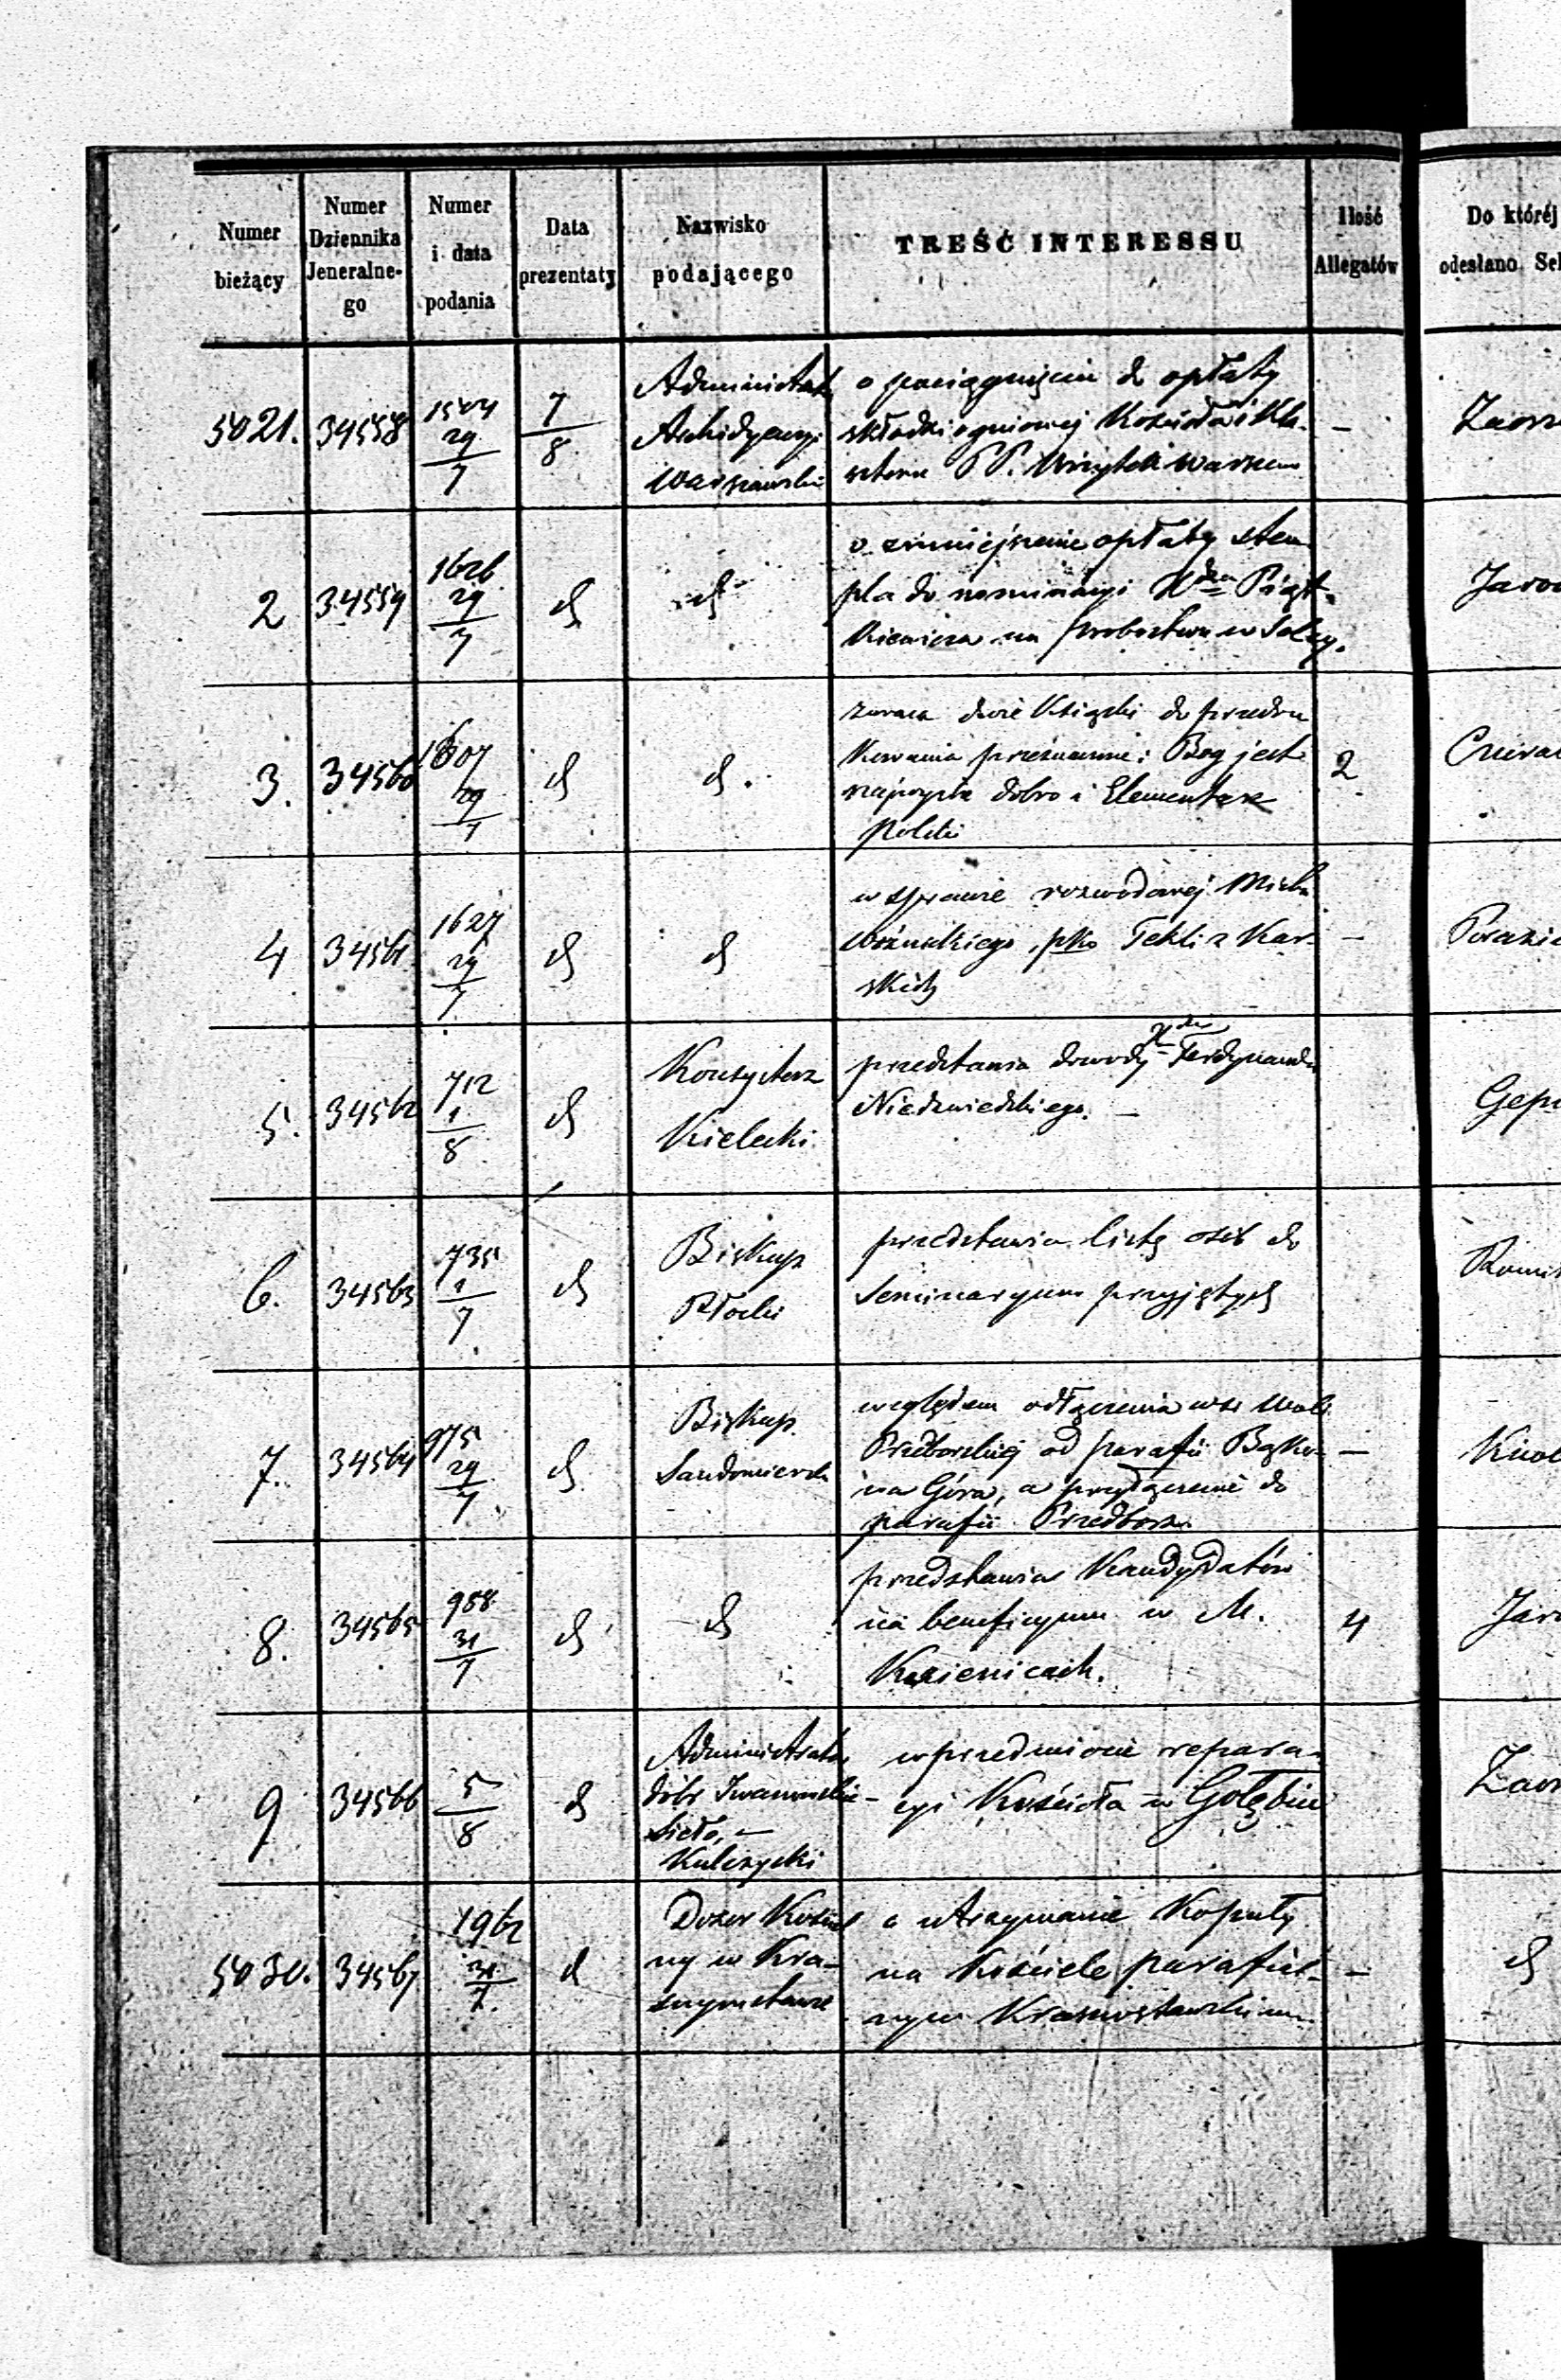 Numer bieżący
Numer Dziennika Jeneralnego
Numer i data podania
Data prezentaty
Nazwisko podającego
TREŚĆ INTERESSU
Ilość Allegatów
Do któréj
odesłano
5021. 34558 29/7 7/8
Administrator
Archidyecezyi
Warszawski
o pociągnięcie do opłaty
składki ogniowej Kościoła i Kla-
sztoru PP. Wizytek Warszaw
—
2 34559 1626 29/7 d d
o zmniejszenie opłaty stem
pla do nominacyi Xdza Piąt-
kiewicza na probostwo w
3. 34560 1607 29/7 d d.
zwraca dwie Książki do przedru
kowania przeznaczone: Bog jest
najwyższe dobro i Elementarz
Polski
2
4 34561 1627 29/7 d d
w sprawie rozwodowej Mich.
pko Tekli z Kar-
skich
—
5. 34562 712 1/8 d
Konsystorz
Kielecki
przedstawia dowody Xdza Ferdynanda
Niedzwiedzkiego. —
6. 34563 735 1/7 d
Biskup
Płocki
przedstawia listę osób do
Seminaryum przyjętych
7. 34564 975 29/7 d
Biskup
Sandomierski
względem odłączenia wsi Woli
Przedborskiej od parafii Bąkow
na Góra, a przyłączenie do
parafii Przedborz.
—
8. 34565 988 31/7 d d
przedstawia Kandydatów
na beneficyum w M.
Kozienicach.
4
9 34566 5/8 d
Administrator
dóbr
Kulczycki
w przedmiocie repara-
cyi Kościoła w Gołębiu
5030. 34567 1962 31/7 d
Dozor Kościel
ny w Kra-
snymstawie
o utrzymanie Kopuły
na Kościele parafial-
nym Krasnostawskim
—
d